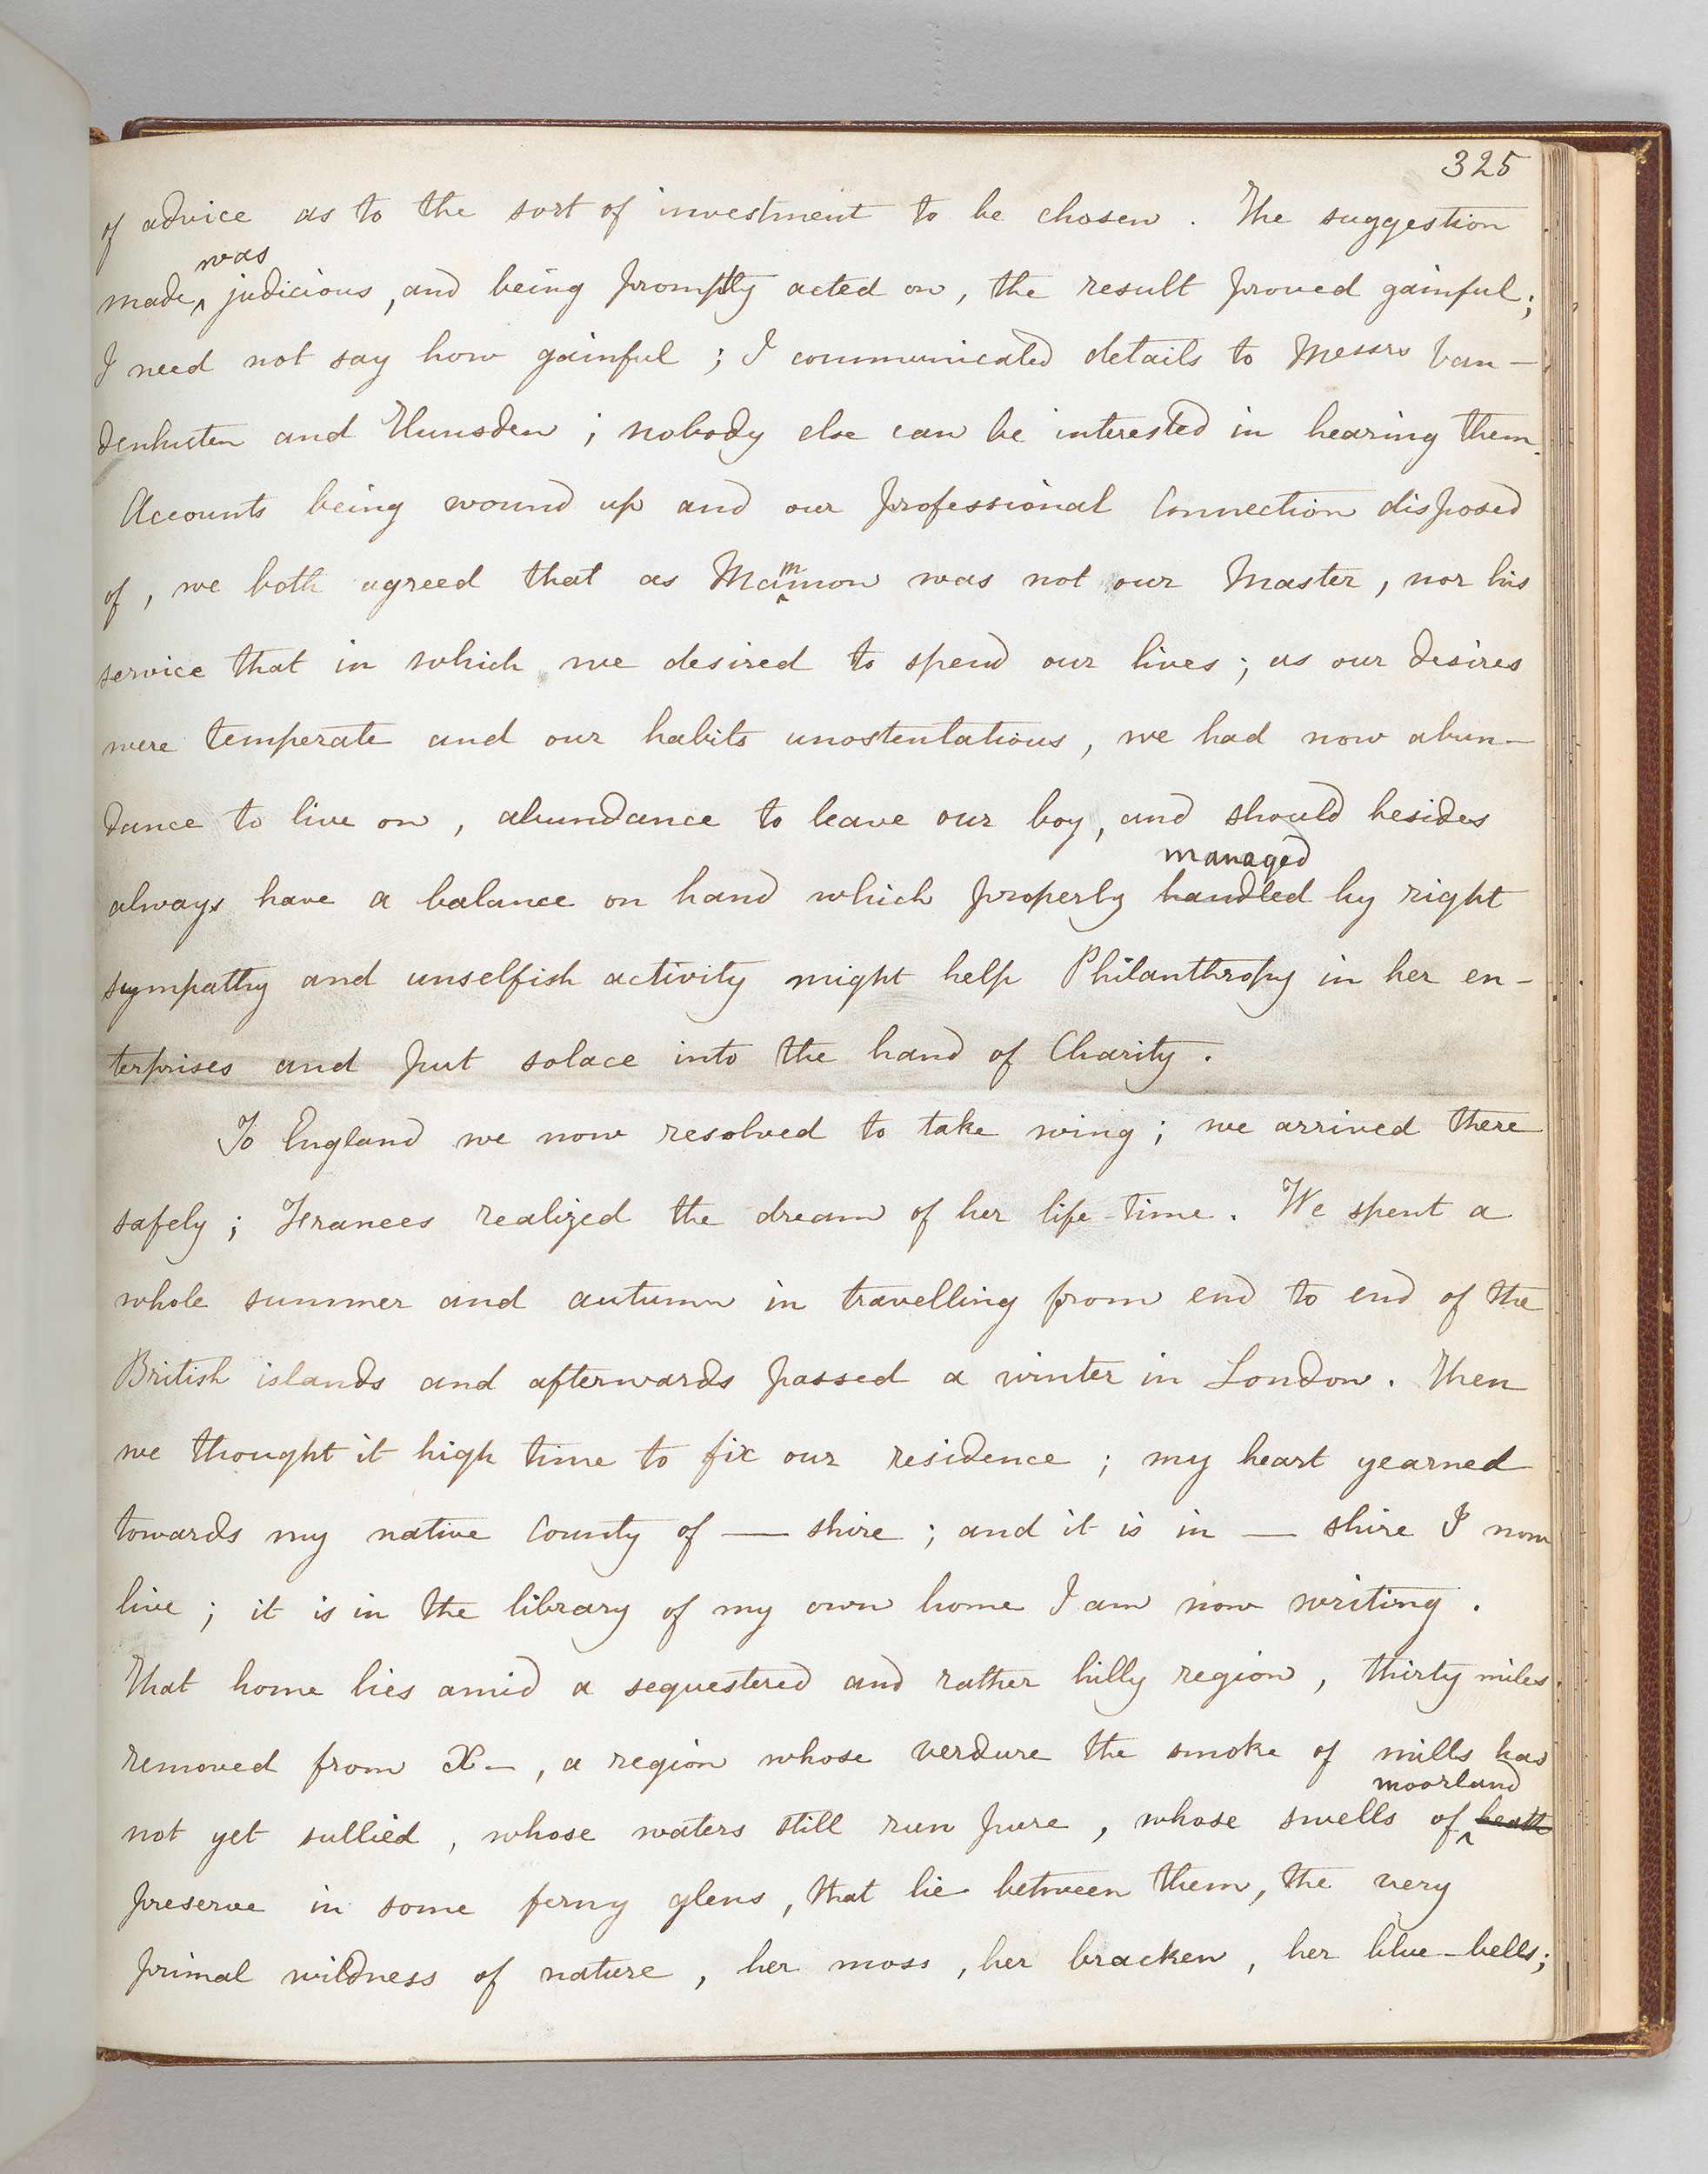 325
of advice as to the sort of investment to be chosen. The suggestion
was
made judicious, and being promptly acted on, the result proved gainful;
I need not say how gainful; I communicated details to Messrs Van-
denhuten and Hunsden; nobody else can be interested in hearing them.
Accounts being wound up and our professional connection disposed
of, we both agreed that as Mammon was not our Master, nor his
service that in which we desired to spend our lives; as our desires
were temperate and our habits unostentatious, we had now abun-
dance to live on, abundance to leave our boy, and should besides
managed
always have a balance on hand which properly handled by right
sympathy and unselfish activity might help Philanthropy in her en-
terprises and put solace into the hand of Charity.
To England we now resolved to take wing; we arrived there
safely; Frances realized the dream of her life-time. We spent a
whole summer and autumn in travelling from end to end of the
British islands and afterwards passed a winter in London. Then
we thought it high time to fix our residence; my heart yearned
towards my native County of — shire; and it is in — shire I now
live; it is in the library of my own home I am now writing.
That home lies amid a sequestered and rather hilly region, thirty miles
removed from X—, a region whose verdure the smoke of mills has
moorland
not yet sullied, whose waters still run pure, whose swells of heath
preserve in some ferny glens, that lie between them, the very
primal wildness of nature, her moss, her bracken, her blue-bells;